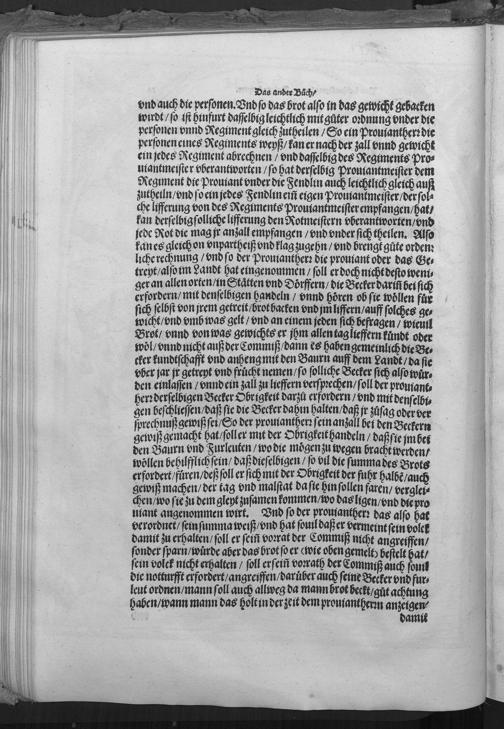 Das ander Bůch/
vnd auch die personen. Vnd so das brot also in das gewicht gebacken
wirdt / so ist hinfurt dasselbig leichtlich mit gůter ordnung vnder die
personen vnnd Regiment gleich zutheilen / So ein Prouiantherr die
personen eines Regiments weyß / kan er nach der zall vnnd gewicht
ein jedes Regiment abrechnen / vnd dasselbig des Regiments Pro-
uiantmeister vberantworten / so hat derselbig Prouiantmeister dem
Regiment die Prouiant vnder die Fendlin auch leichtlich gleich auß
zutheiln / vnd so ein jedes Fendlin ein eigen Prouiantmeister / der sol-
che lifferung von des Regiments Prouiantmeister empfangen / hat /
kan derselbig solliche lifferung den Rotmeistern vberantworten / vnd
jede Rot die mag jr anzall empfangen / vnd vnder sich theilen. Also
kan es gleich on vnpartheiß vnd klag zugehn / vnd brengt gůte orden-
liche rechnung / vnd so der Prouiantherr die prouiant oder das Ge-
treyt / also im Landt hat eingenommen / soll er doch nicht desto weni-
ger an allen orten / in Stätten vnd Dörffern / die Becker darin bei sich
erfordern / mit denselbigen handeln / vnnd hören ob sie wöllen für
sich selbst von jrem getreit / brot backen vnd jm liffern / auff solches ge-
wicht / vnd vmb was gelt / vnd an einem jeden sich befragen / wieuil
Brot / vnnd von was gewichts er jhm allen tag lieffern kündt oder
wöl / vnnd nicht auß der Commiß / dann es haben gemeinlich die Be-
cker kundtschafft vnd anhengmit den Baurn auff dem Landt / da sie
vber jar jr getreyt vnd frücht nemen / so solliche Becker sich also wür-
den einlassen / vnnd ein zall zu lieffern versprechen / soll der prouiant-
herr derselbigen Becker Obrigkeit darzů erfordern / vnd mit denselbi-
gen beschliessen / daß sie die Becker dahin halten / daß jr zůsag oder ver
sprechnuß gewiß sei / So der prouiantherr sein anzall bei den Beckern
gewiß gemacht hat / soll er mit der Obrigkeit handeln / daß sie jm bei
den Baurn vnd Furleuten / wo die mögen zu wegen bracht werden /
wöllen behilfflich sein / daß dieselbigen / so vil die summa des Brots
erfordert / füren / deß soll er sich mit der Obrigkeit der fuhr halbē / auch
gewiß machen / der tag vnd malstat da sie hin sollen faren / verglei-
chen / wo sie zu dem gleyt zusamen kommen / wo das ligen / vnd die pro
uiant angenommen wirt. Vnd so der prouiantherr das also hat
verordnet / sein summa weiß / vnd hat souil daß er vermeint sein volck
damit zu erhalten / soll er sein vorrat der Comiß nicht angreiffen /
sonder sparn / würde aber das brot so er (wie oben gemelt) bestelt hat /
sein volck nicht erhalten / soll er sein vorrath der Commiß auch souil
die notturfft erfordert / angreiffen / darüber auch seine Becker vnd fur-
leut ordnen / mann soll auch allweg da mann brot beckt / gůt achtung
haben / wann mann das holt in der zeit dem prouiantherrn anzeigen /
damit